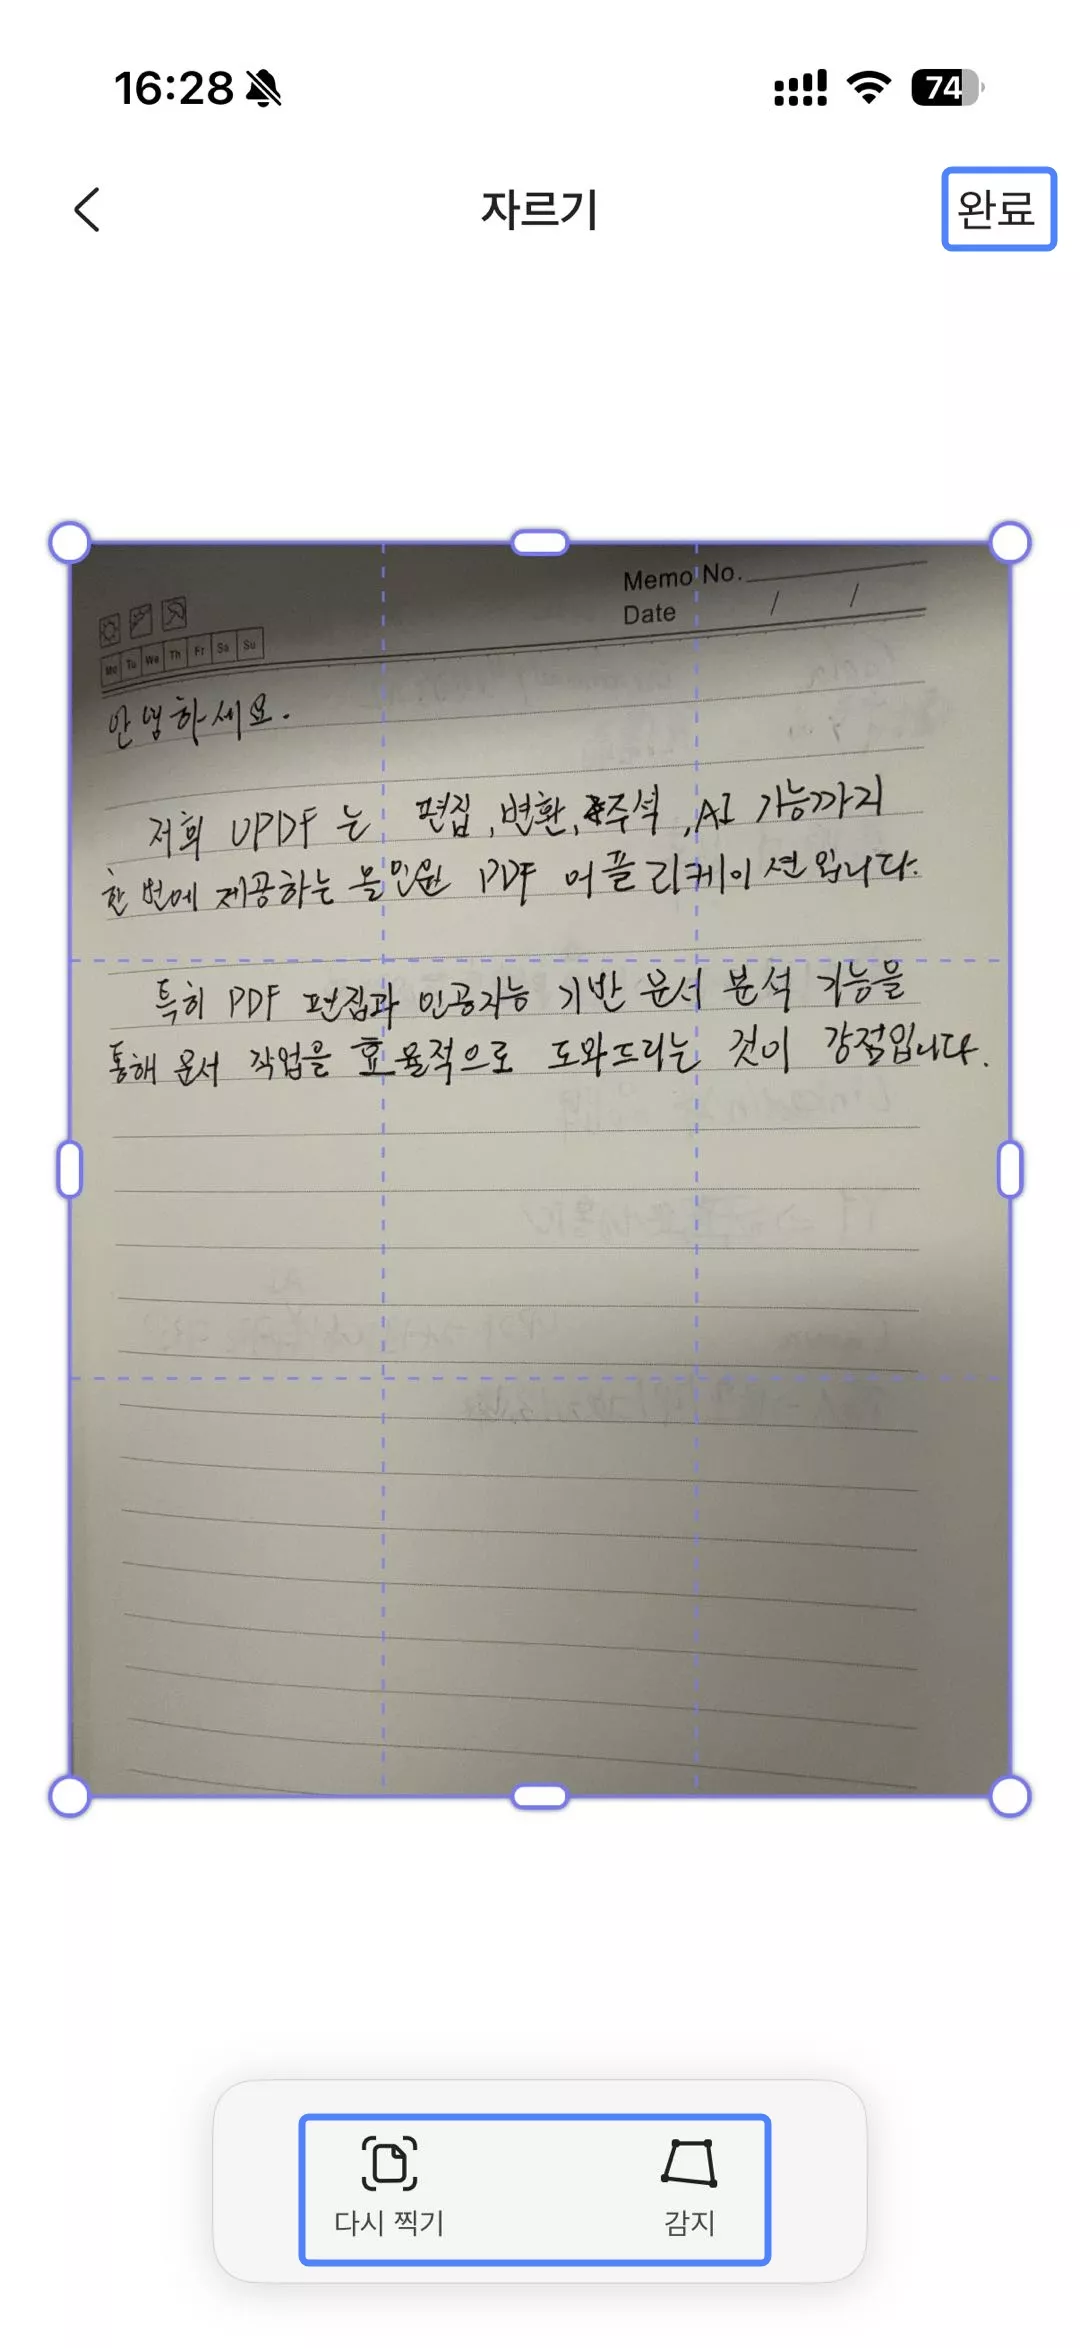 16:28
74
자르기
완료
Memo No.
Date / /
Mo Tu We Th Fr Sa Su
안녕하세요.
저희 UPDF 는 편집, 변환, 주석, AI 기능까지
한 번에 제공하는 올인원 PDF 어플리케이션입니다.
특히 PDF 편집과 인공지능 기반 문서 분석 기능을
통해 문서 작업을 효율적으로 도와드리는 것이 강점입니다.
다시 찍기
감지